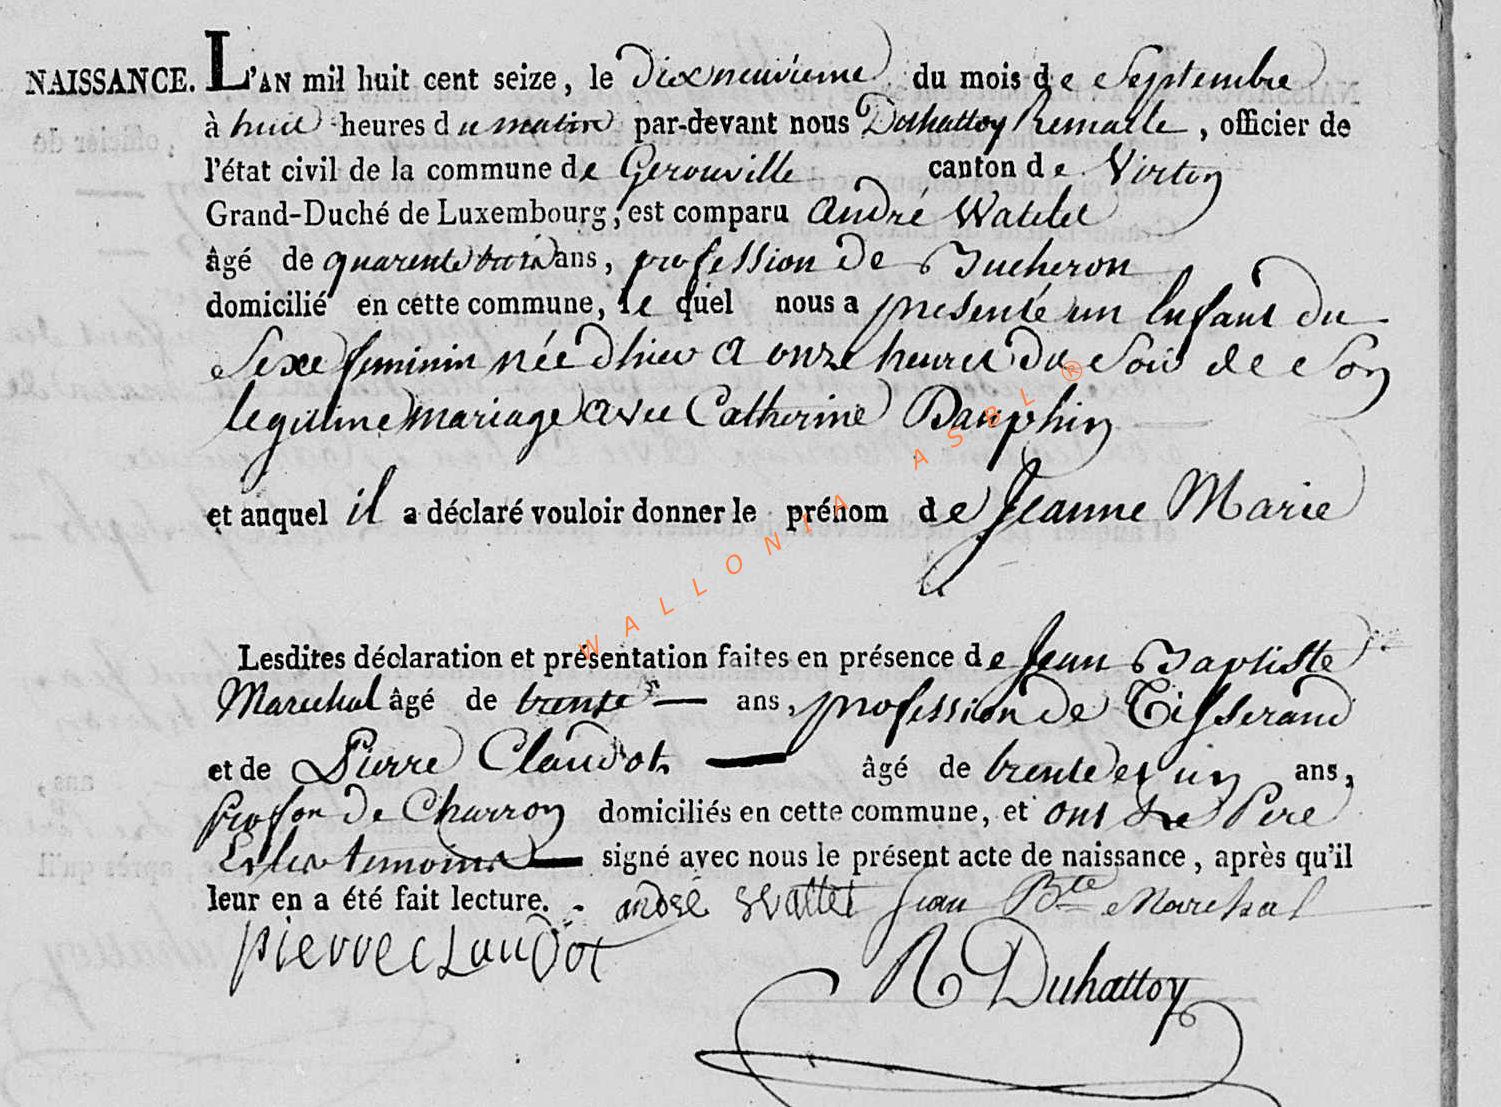 NAISSANCE. L'AN mil huit cent seize, le dixneuvieme du mois de Septembre
à huit heures du matin par-devant nous Duhattoy Remacle, officier de
l'état civil de la commune de Gerouville canton de Virton
Grand-Duché de Luxembourg, est comparu André Watelet
âgé de quarente trois ans, profession de Bucheron
domicilié en cette commune, le quel nous a presenté un Enfant du
Sexe feminin née d'hier a onze heures du Soir de Son
legitime mariage avec Catherine Dauphin
et auquel il a déclaré vouloir donner le prénom de Jeanne Marie
Lesdites déclaration et présentation faites en présence de Jean Baptiste
Marechal âgé de trente ans, profession de Tisserand
et de Pierre Claudot âgé de trente et un ans,
profon de Charron domiciliés en cette commune, et ont Le Pere
Et les temoins signé avec nous le présent acte de naissance, après qu'il
leur en a été fait lecture. andré Jean Bte Marechal
pierre cLauDot
R Duhattoy
WALLONIA ASBL ®